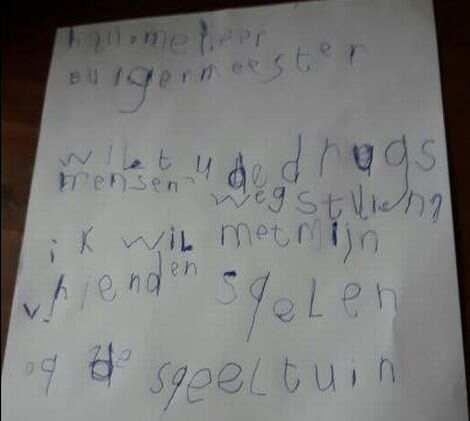 hallo meheer
burgermeester
wilt u de drugs
mensen wegsturen
ik wil met mijn
vrienden spelen
op de speeltuin